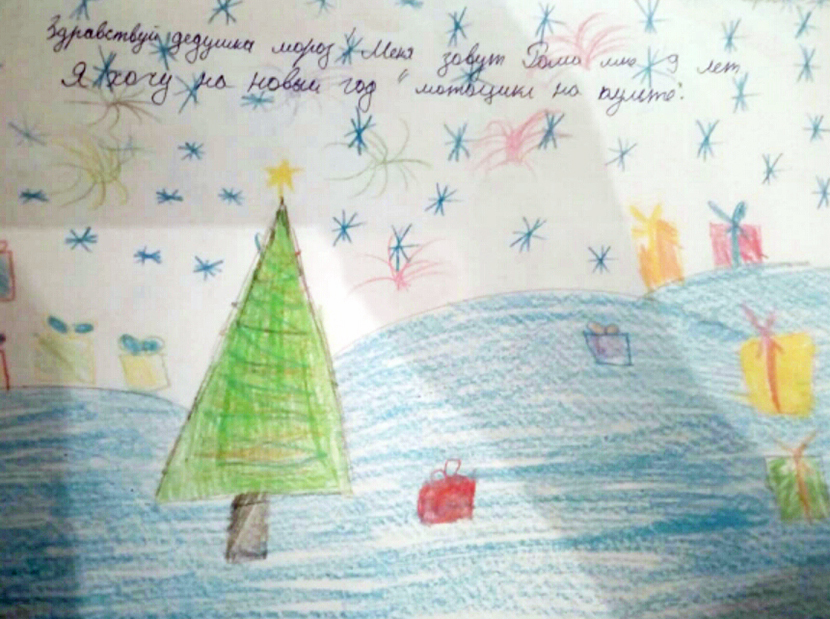 Здравствуй дедушка мороз! Меня зовут Рома мне 9 лет
Я хочу на новый год "мотоцикл на пульте".